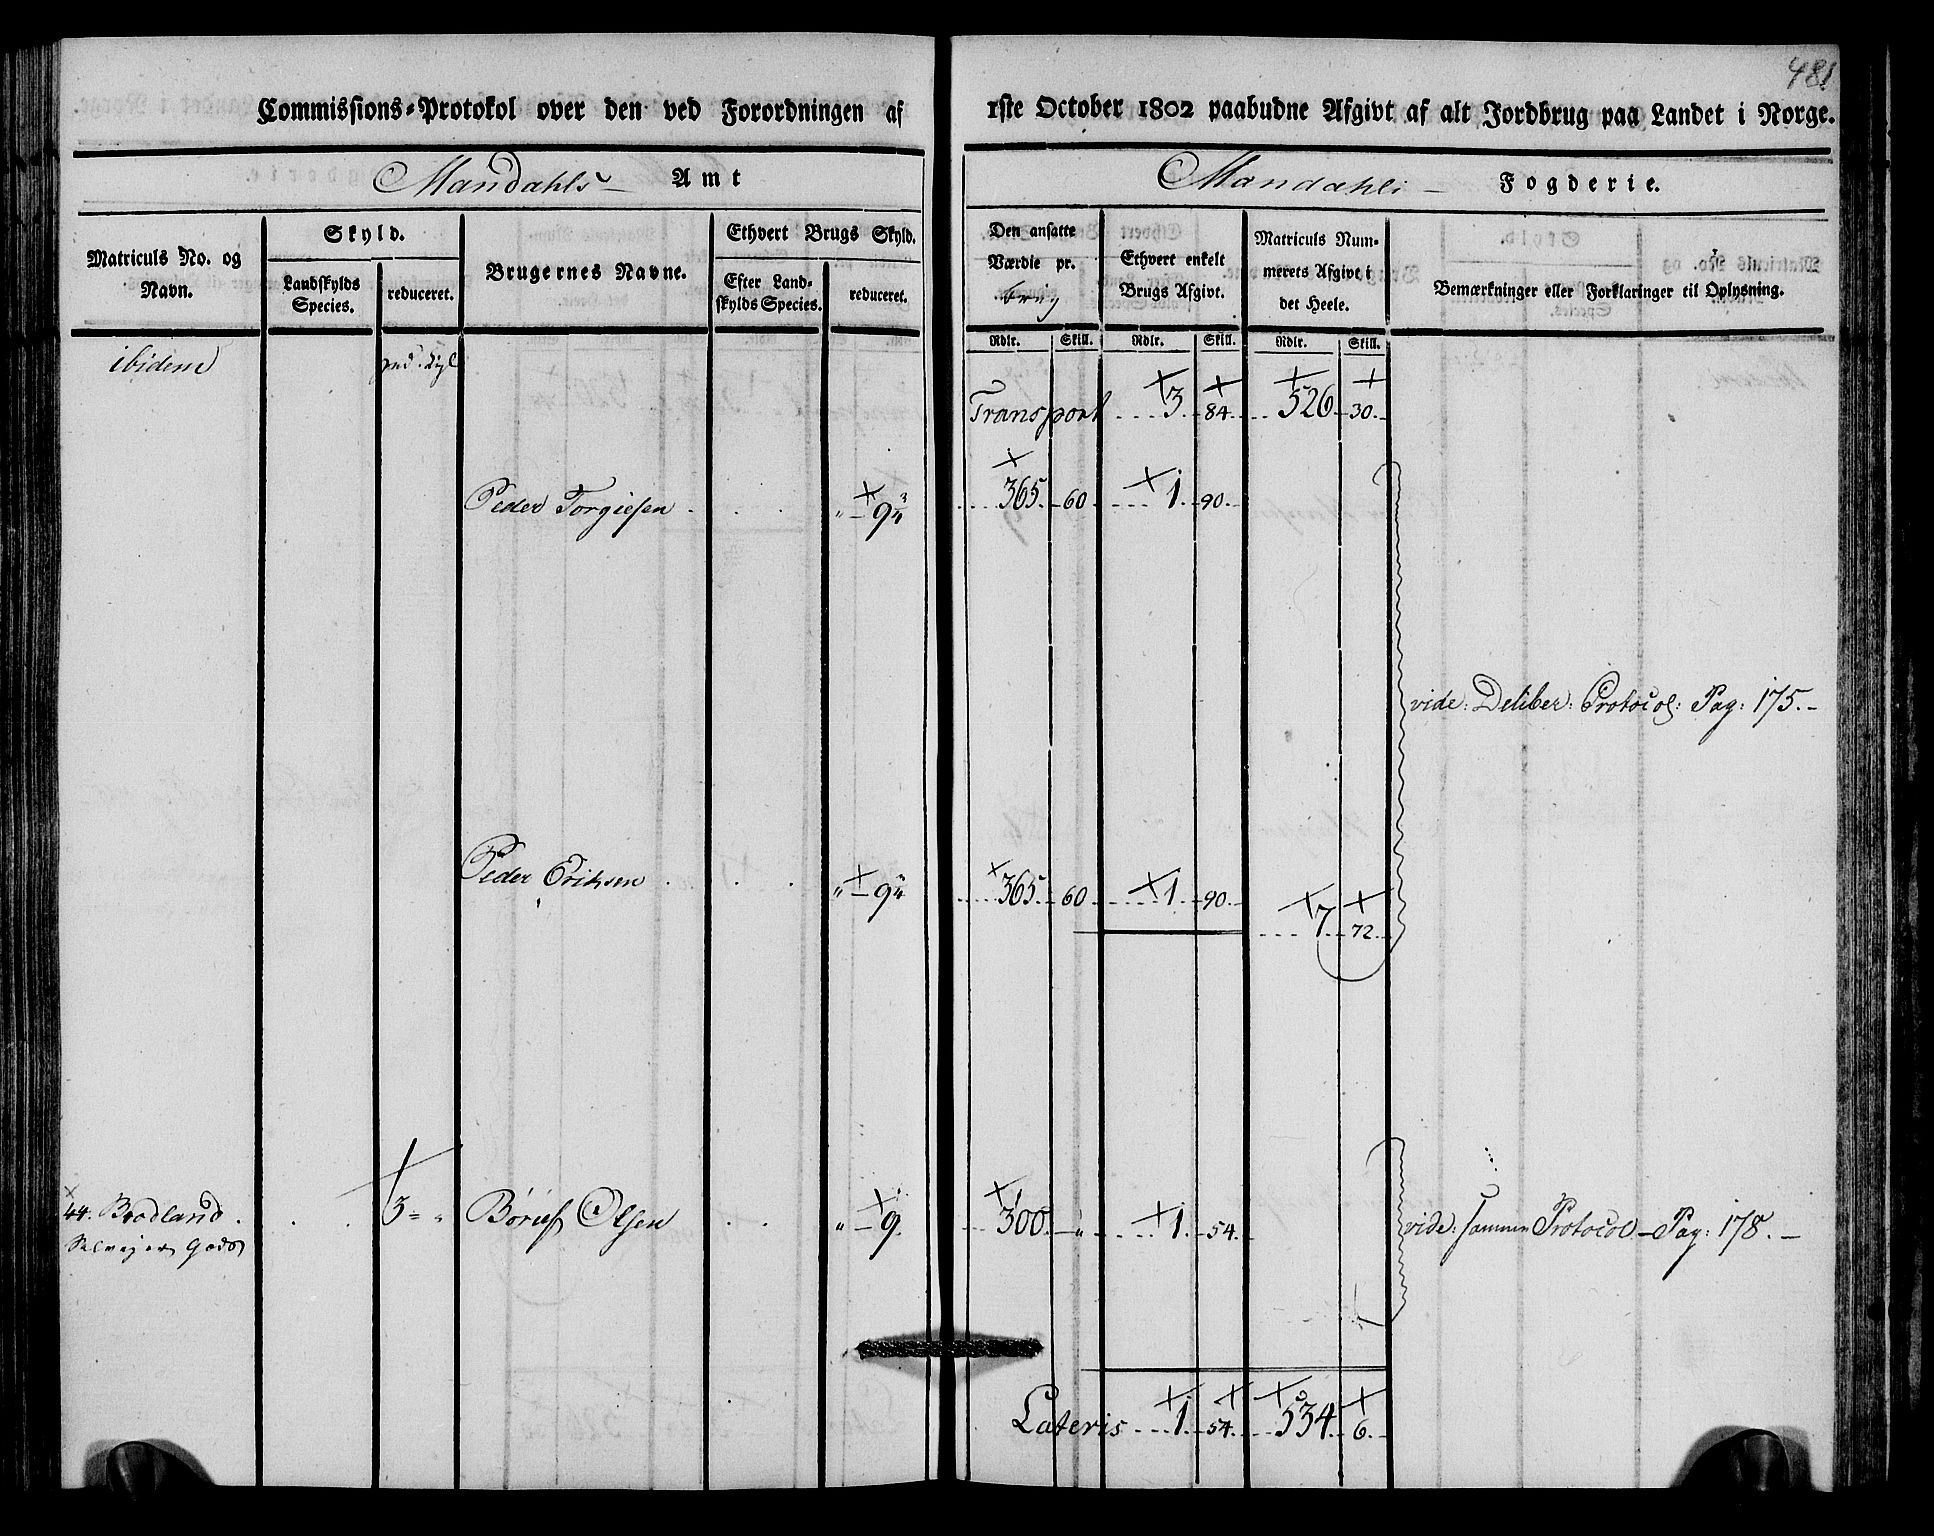 481
Commissions=Protokol over den ved Forordningen af 1ste October 1802 paabudne Afgivt af alt Jordbrug paa Landet i Norge.
Mandahls Amt
Mandahls Fogderie.
Matriculs No. og Navn.
Skyld.
Landskylds Species.
reduceret.
Brugernes Navne.
Ethvert Brugs Skyld.
Efter Land-skylds Species.
reduceret.
Den ansatte Værdie pr.
Ethvert enkelt Brugs Afgivt.
Matriculs Num-merets Afgivt i det Heele.
Bemærkninger eller Forklaringer til Oplysning.
Rdlr. Skill. Rdlr. Skill. Rdlr. Skill.
ibidem
Transport 3. 84. 526 30.
Peder Torgiesen " 9 3/4 365. 60 1. 90.
vide: Deliber: Protocol: Pag: 175.
Peder Eriksen " 9 365. 60 1. 90.
7. 72.
44. Brodland. 3 " " Børief Olsen " 9. 300. " 1. 54. vide: samme Protocol Pag: 178.
Gods
Lateris 1. 54. 534. 6.